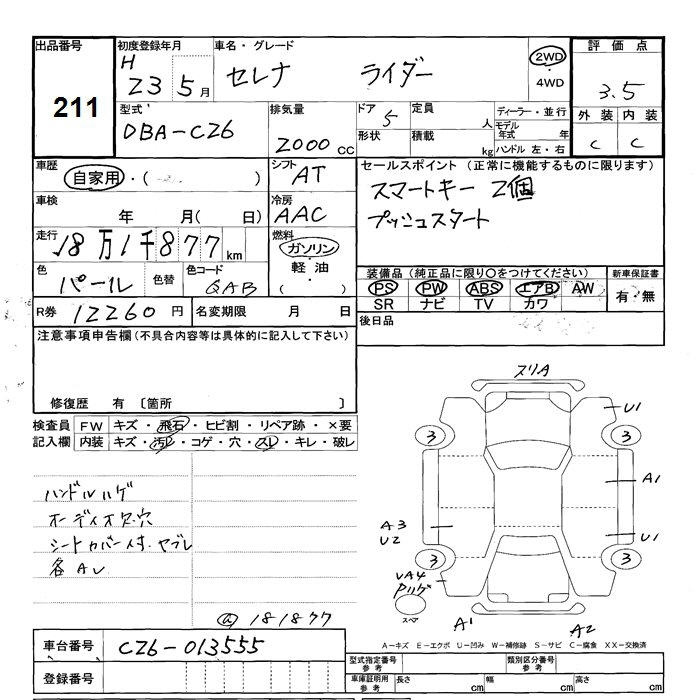 出品番号 初度登録年月 車名・グレード 評価点
211 H 23 5月 セレナ ライダー 2WD ・ 4WD 3.5
型式 排気量 ドア 定員 人 ディーラー・並行 外装 内装
DBA-C26 2000cc 5 形状 積載 kg モデル年式 年 ハンドル 左・右 C C
車歴 シフト セールスポイント (正常に機能するものに限ります)
自家用・( ) AT スマートキー 2個
車検 冷房 プッシュスタート
年 月( 日) AAC
走行 燃料
18万1千877km ガソリン・軽油・( )
色 色替 色コード 装備品(純正品に限り○をつけてください) 新車保証書
パール QAB PS PW ABS エアB AW 有・無
SR ナビ TV カワ
R券 12260円 名変期限 月 日 後日品
注意事項申告欄(不具合内容等は具体的に記入して下さい)
修復歴 有 〔箇所 〕
検査員記入欄 FW キズ・飛石・ヒビ割・リペア跡・×要
内装 キズ・汚レ・コゲ・穴・スレ・キレ・破レ
スリA
U1
3 3
A1
ハンドルハゲ
オーディオ欠.穴
シートカバー付.ヤブレ
各AU
A3
U2
U1
3 3
UA4
Pハゲ
スペア
A1
A2
a 181877
A-キズ E-エクボ U-凹み W-補修跡 S-サビ C-腐食 XX-交換済
車台番号 C26-013555
登録番号
型式指定番号参考 類別区分番号参考
車庫証明用参考 長さ cm 幅 cm 高さ cm